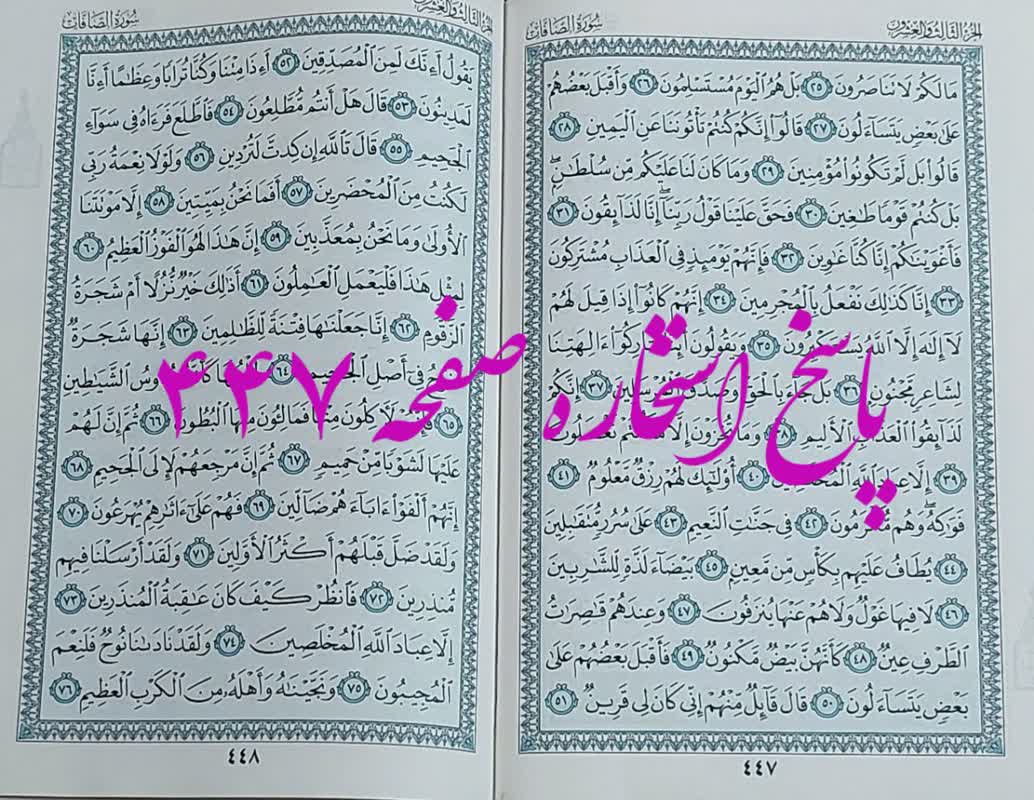 الجزء الثالث والعشرون سورة الصافات
مَا لَكُمْ لَا تَنَاصَرُونَ ٢٥ بَلْ هُمُ الْيَوْمَ مُسْتَسْلِمُونَ ٢٦ وَأَقْبَلَ بَعْضُهُمْ
عَلَى بَعْضٍ يَتَسَاءَلُونَ ٢٧ قَالُوا إِنَّكُمْ كُنتُمْ تَأْتُونَنَا عَنِ الْيَمِينِ ٢٨
قَالُوا بَل لَّمْ تَكُونُوا مُؤْمِنِينَ ٢٩ وَمَا كَانَ لَنَا عَلَيْكُم مِّن سُلْطَٰنٍ ۖ
بَلْ كُنتُمْ قَوْمًا طَٰغِينَ ٣٠ فَحَقَّ عَلَيْنَا قَوْلُ رَبِّنَا ۖ إِنَّا لَذَائِقُونَ ٣١
فَأَغْوَيْنَٰكُمْ إِنَّا كُنَّا غَٰوِينَ ٣٢ فَإِنَّهُمْ يَوْمَئِذٍ فِي الْعَذَابِ مُشْتَرِكُونَ
٣٣ إِنَّا كَذَٰلِكَ نَفْعَلُ بِالْمُجْرِمِينَ ٣٤ إِنَّهُمْ كَانُوا إِذَا قِيلَ لَهُمْ
لَا إِلَٰهَ إِلَّا اللَّهُ يَسْتَكْبِرُونَ ٣٥ وَيَقُولُونَ أَئِنَّا لَتَارِكُوا ءَالِهَتِنَا
لِشَاعِرٍ مَّجْنُونٍ ٣٦ بَلْ جَاءَ بِالْحَقِّ وَصَدَّقَ الْمُرْسَلِينَ ٣٧ إِنَّكُمْ
لَذَائِقُوا الْعَذَابِ الْأَلِيمِ ٣٨ وَمَا تُجْزَوْنَ إِلَّا مَا كُنتُمْ تَعْمَلُونَ
٣٩ إِلَّا عِبَادَ اللَّهِ الْمُخْلَصِينَ ٤٠ أُولَٰئِكَ لَهُمْ رِزْقٌ مَّعْلُومٌ ٤١
فَوَٰكِهُ ۖ وَهُم مُّكْرَمُونَ ٤٢ فِي جَنَّٰتِ النَّعِيمِ ٤٣ عَلَىٰ سُرُرٍ مُّتَقَٰبِلِينَ
٤٤ يُطَافُ عَلَيْهِم بِكَأْسٍ مِّن مَّعِينٍ ٤٥ بَيْضَاءَ لَذَّةٍ لِّلشَّٰرِبِينَ
٤٦ لَا فِيهَا غَوْلٌ وَلَا هُمْ عَنْهَا يُنزَفُونَ ٤٧ وَعِندَهُمْ قَٰصِرَٰتُ
الطَّرْفِ عِينٌ ٤٨ كَأَنَّهُنَّ بَيْضٌ مَّكْنُونٌ ٤٩ فَأَقْبَلَ بَعْضُهُمْ عَلَىٰ
بَعْضٍ يَتَسَاءَلُونَ ٥٠ قَالَ قَائِلٌ مِّنْهُمْ إِنِّي كَانَ لِي قَرِينٌ ٥١
٤٤٧
الجزء الثالث والعشرون سورة الصافات
يَقُولُ أَءِنَّكَ لَمِنَ الْمُصَدِّقِينَ ٥٢ أَءِذَا مِتْنَا وَكُنَّا تُرَابًا وَعِظَٰمًا أَءِنَّا
لَمَدِينُونَ ٥٣ قَالَ هَلْ أَنتُم مُّطَّلِعُونَ ٥٤ فَاطَّلَعَ فَرَءَاهُ فِي سَوَاءِ
الْجَحِيمِ ٥٥ قَالَ تَاللَّهِ إِن كِدتَّ لَتُرْدِينِ ٥٦ وَلَوْلَا نِعْمَةُ رَبِّي
لَكُنتُ مِنَ الْمُحْضَرِينَ ٥٧ أَفَمَا نَحْنُ بِمَيِّتِينَ ٥٨ إِلَّا مَوْتَتَنَا
الْأُولَىٰ وَمَا نَحْنُ بِمُعَذَّبِينَ ٥٩ إِنَّ هَٰذَا لَهُوَ الْفَوْزُ الْعَظِيمُ ٦٠
لِمِثْلِ هَٰذَا فَلْيَعْمَلِ الْعَٰمِلُونَ ٦١ أَذَٰلِكَ خَيْرٌ نُّزُلًا أَمْ شَجَرَةُ
الزَّقُّومِ ٦٢ إِنَّا جَعَلْنَٰهَا فِتْنَةً لِّلظَّٰلِمِينَ ٦٣ إِنَّهَا شَجَرَةٌ
تَخْرُجُ فِي أَصْلِ الْجَحِيمِ ٦٤ طَلْعُهَا كَأَنَّهُ رُءُوسُ الشَّيَٰطِينِ
٦٥ فَإِنَّهُمْ لَءَاكِلُونَ مِنْهَا فَمَالِئُونَ مِنْهَا الْبُطُونَ ٦٦ ثُمَّ إِنَّ لَهُمْ
عَلَيْهَا لَشَوْبًا مِّنْ حَمِيمٍ ٦٧ ثُمَّ إِنَّ مَرْجِعَهُمْ لَإِلَى الْجَحِيمِ ٦٨
إِنَّهُمْ أَلْفَوْا ءَابَاءَهُمْ ضَالِّينَ ٦٩ فَهُمْ عَلَىٰ ءَاثَٰرِهِمْ يُهْرَعُونَ ٧٠
وَلَقَدْ ضَلَّ قَبْلَهُمْ أَكْثَرُ الْأَوَّلِينَ ٧١ وَلَقَدْ أَرْسَلْنَا فِيهِم
مُّنذِرِينَ ٧٢ فَانظُرْ كَيْفَ كَانَ عَٰقِبَةُ الْمُنذَرِينَ ٧٣
إِلَّا عِبَادَ اللَّهِ الْمُخْلَصِينَ ٧٤ وَلَقَدْ نَادَىٰنَا نُوحٌ فَلَنِعْمَ
الْمُجِيبُونَ ٧٥ وَنَجَّيْنَٰهُ وَأَهْلَهُ مِنَ الْكَرْبِ الْعَظِيمِ ٧٦
٤٤٨
پاسخ استخاره صفحه ۴۴۷